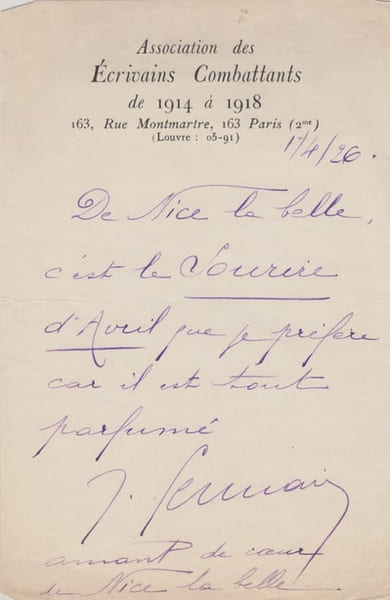 Association des
Écrivains Combattants
de 1914 à 1918
163, Rue Montmartre, 163 Paris (2me)
(Louvre : 05-91)
17/4/26.
De Nice la belle,
c'est le Sourire
d'Avril que je préfère
car il est tout
parfumé
J. Germain
amant de cœur
de Nice la belle